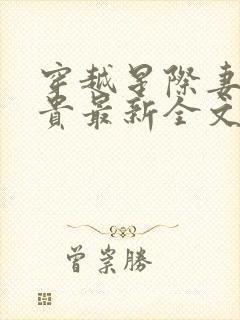 穿越星際妻
貴最新全文
曾崇勝